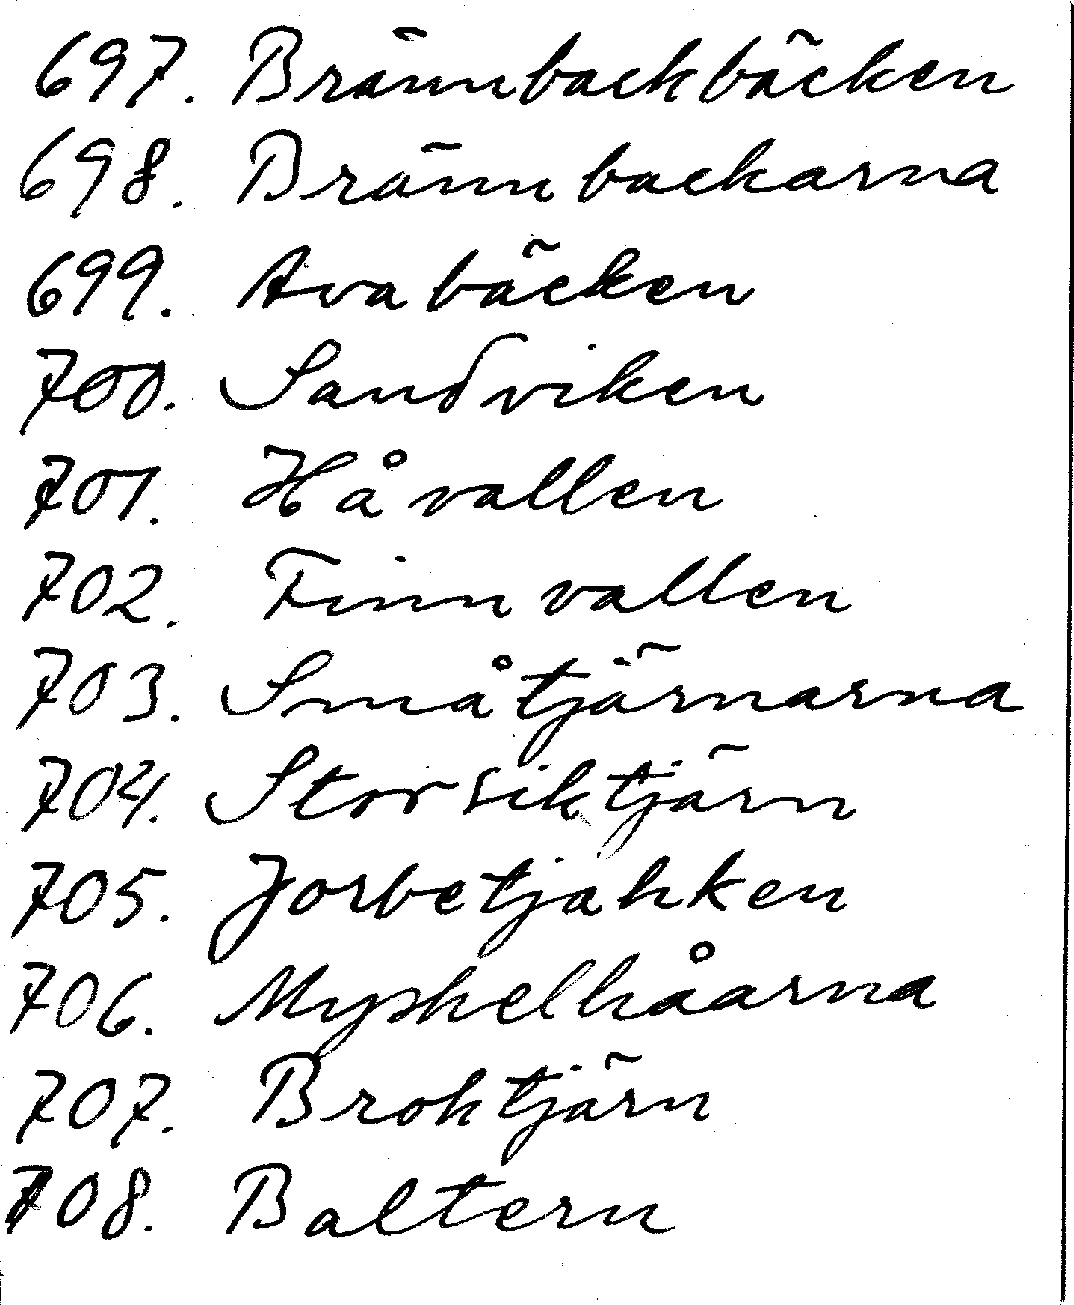 697. Brännbackbäcken
698. Brännbackarna
699. Avabäcken
700. Sandviken
701. Håvallen
702. Finnvallen
703. Småtjärnarna
704. Storsiktjärn
705. Jorbetjahken
706. Myskelhåarna
707. Broktjärn
708. Baltern